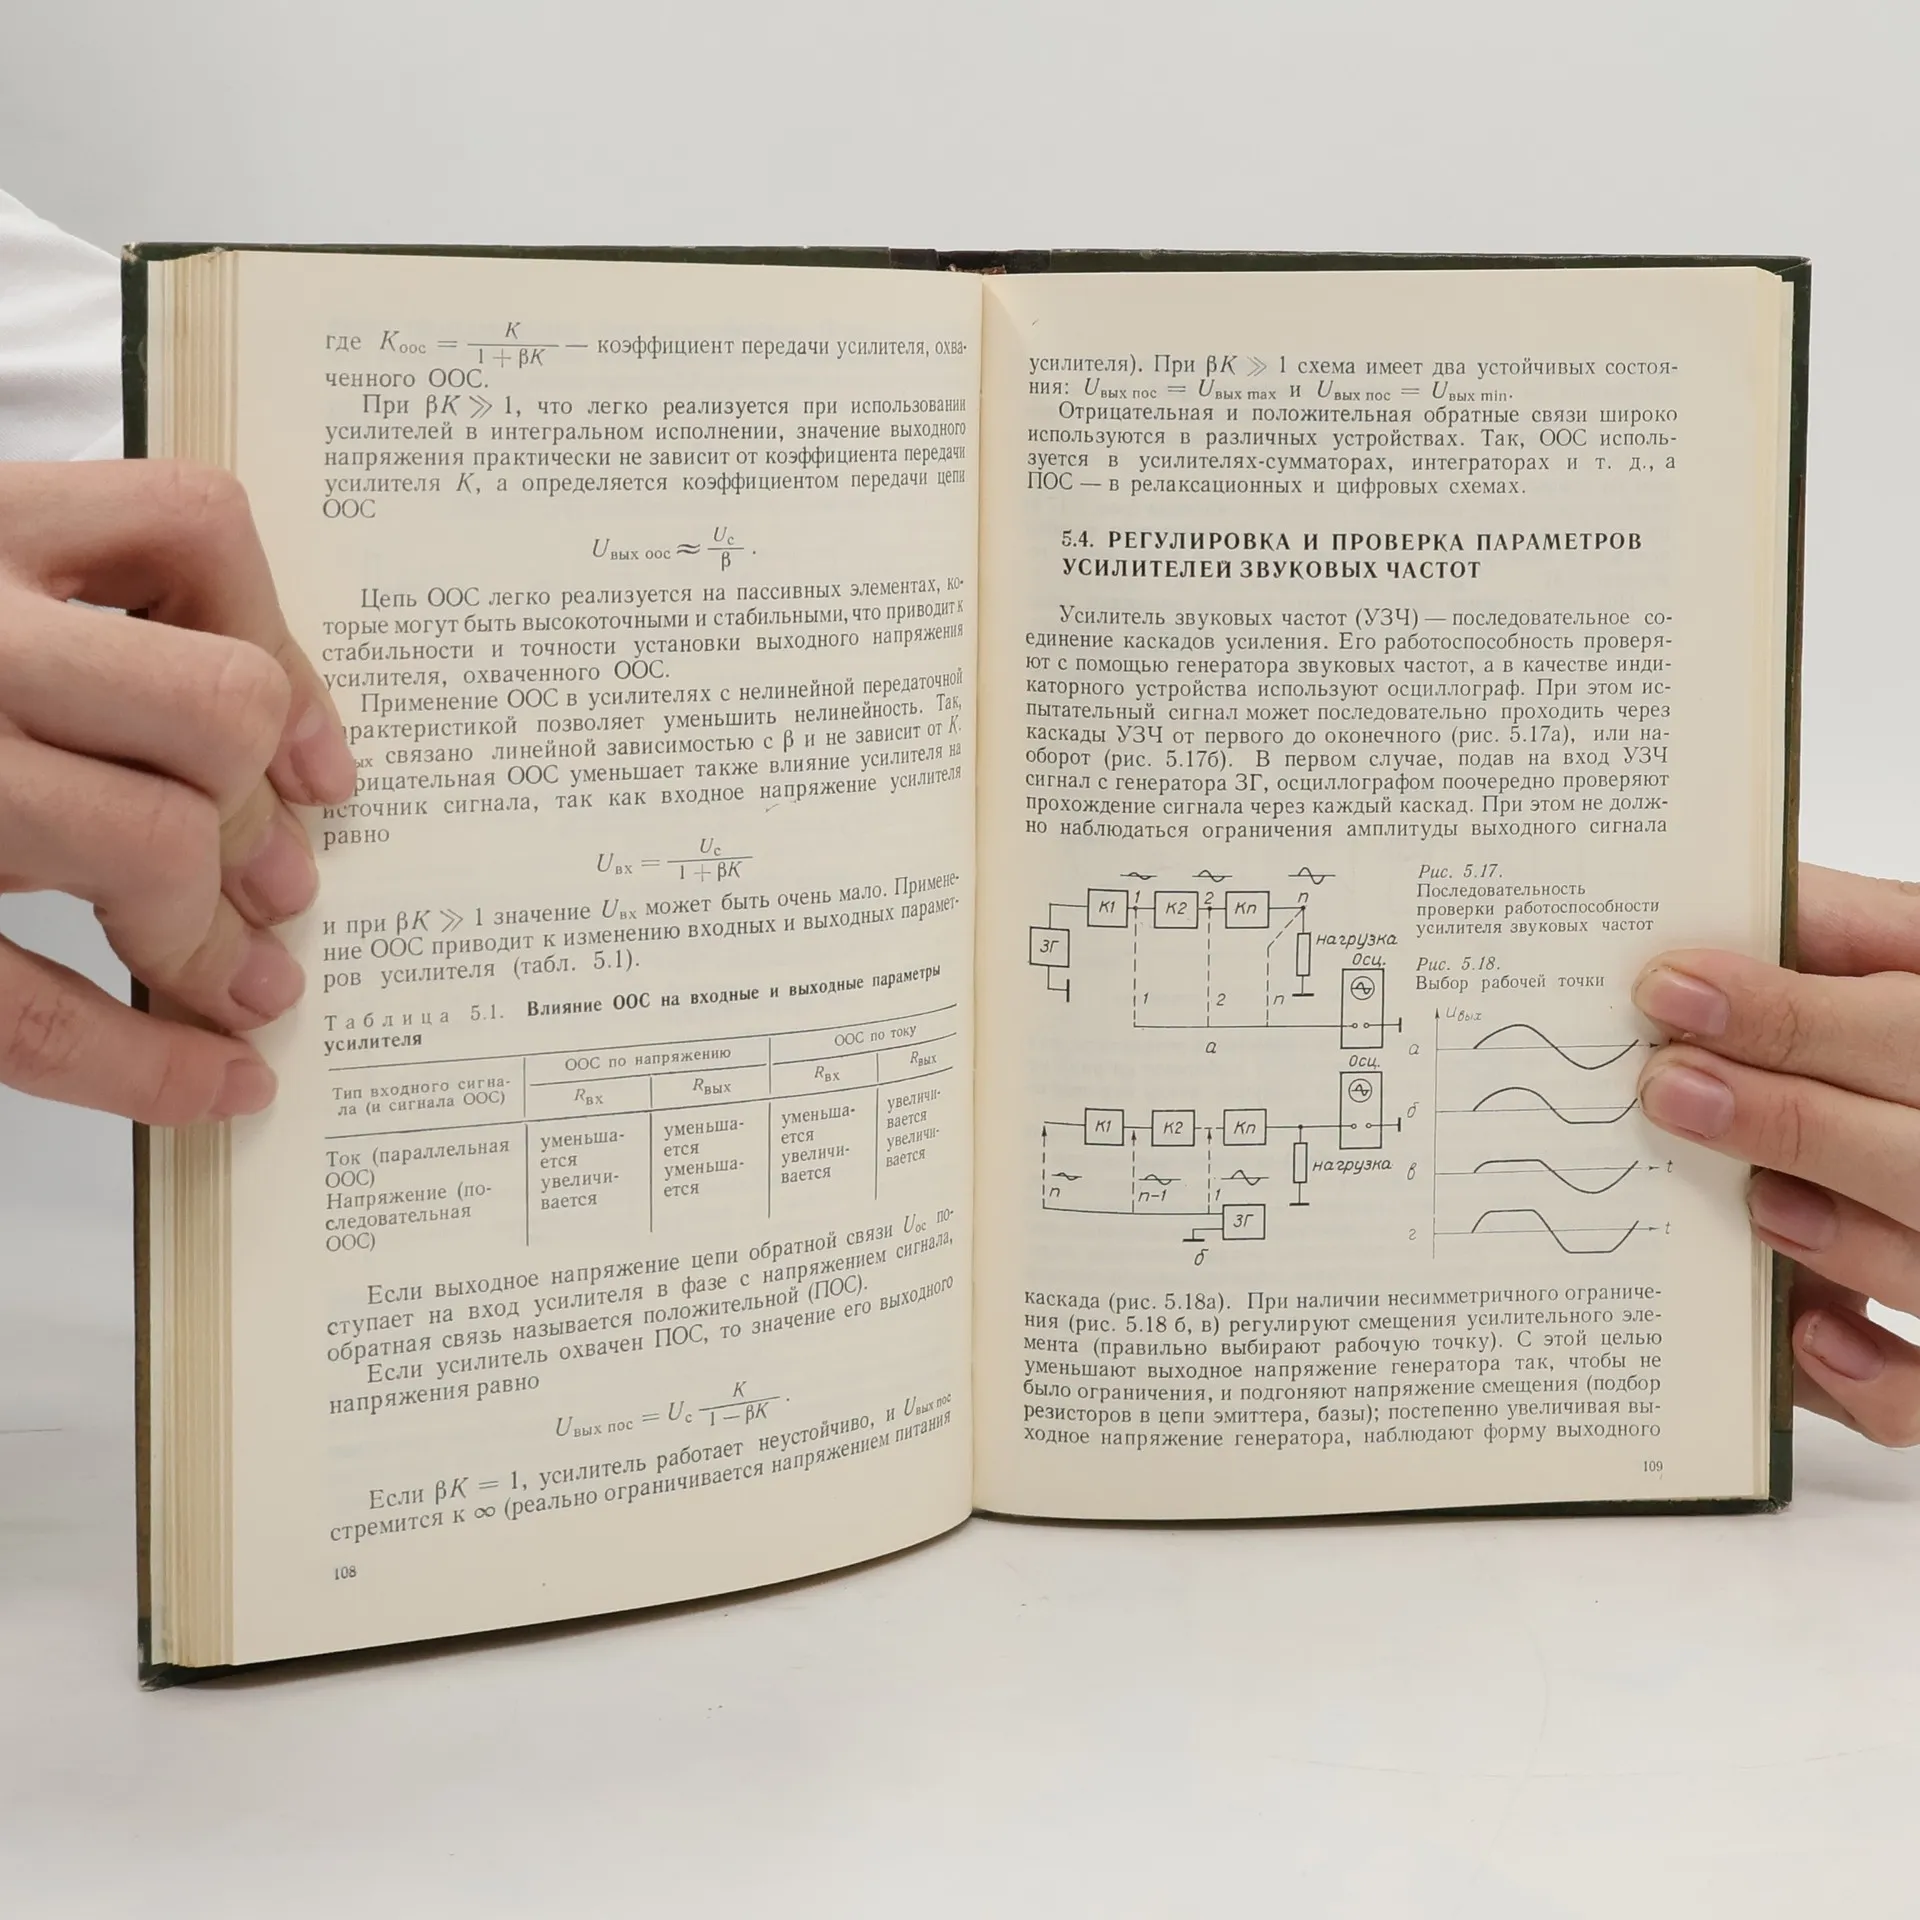 где K оос = K / 1 + βK — коэффициент передачи усилителя, охва-
ченного ООС.
При βK ≫ 1, что легко реализуется при использовании
усилителей в интегральном исполнении, значение выходного
напряжения практически не зависит от коэффициента передачи
усилителя K, а определяется коэффициентом передачи цепи
ООС
U вых оос ≈ U с / β .
Цепь ООС легко реализуется на пассивных элементах, ко-
торые могут быть высокоточными и стабильными, что приводит к
стабильности и точности установки выходного напряжения
усилителя, охваченного ООС.
Применение ООС в усилителях с нелинейной передаточной
рактеристикой позволяет уменьшить нелинейность. Так,
ых связано линейной зависимостью с β и не зависит от K.
рицательная ООС уменьшает также влияние усилителя на
источник сигнала, так как входное напряжение усилителя
равно
U вх = U с / 1 + βK
и при βK ≫ 1 значение U вх может быть очень мало. Примене-
ние ООС приводит к изменению входных и выходных парамет-
ров усилителя (табл. 5.1).
Таблица 5.1. Влияние ООС на входные и выходные параметры
усилителя
Тип входного сигна-
ла (и сигнала ООС)
ООС по напряжению
ООС по току
R вх
R вых
R вх
R вых
Ток (параллельная
ООС)
уменьша-
ется
уменьша-
ется
уменьша-
ется
увеличи-
вается
Напряжение (по-
следовательная
ООС)
увеличи-
вается
уменьша-
ется
увеличи-
вается
увеличи-
вается
Если выходное напряжение цепи обратной связи U ос по-
ступает на вход усилителя в фазе с напряжением сигнала,
обратная связь называется положительной (ПОС).
Если усилитель охвачен ПОС, то значение его выходного
напряжения равно
U вых пос = U с K / 1 − βK .
Если βK = 1, усилитель работает неустойчиво, и U вых пос
стремится к ∞ (реально ограничивается напряжением питания
108
усилителя). При βK ≫ 1 схема имеет два устойчивых состоя-
ния: U вых пос = U вых max и U вых пос = U вых min.
Отрицательная и положительная обратные связи широко
используются в различных устройствах. Так, ООС исполь-
зуется в усилителях-сумматорах, интеграторах и т. д., а
ПОС — в релаксационных и цифровых схемах.
5.4. РЕГУЛИРОВКА И ПРОВЕРКА ПАРАМЕТРОВ
УСИЛИТЕЛЕЙ ЗВУКОВЫХ ЧАСТОТ
Усилитель звуковых частот (УЗЧ) — последовательное со-
единение каскадов усиления. Его работоспособность проверя-
ют с помощью генератора звуковых частот, а в качестве инди-
каторного устройства используют осциллограф. При этом ис-
пытательный сигнал может последовательно проходить через
каскады УЗЧ от первого до оконечного (рис. 5.17а), или на-
оборот (рис. 5.17б). В первом случае, подав на вход УЗЧ
сигнал с генератора ЗГ, осциллографом поочередно проверяют
прохождение сигнала через каждый каскад. При этом не долж-
но наблюдаться ограничения амплитуды выходного сигнала
К1 1 К2 2 Кп п
ЗГ
нагрузка
Осц.
1 2 п
а
Осц.
К1 К2 Кп
нагрузка
п п-1 1
ЗГ
б
Рис. 5.17.
Последовательность
проверки работоспособности
усилителя звуковых частот
Рис. 5.18.
Выбор рабочей точки
U вых
а
б
в t
г t
каскада (рис. 5.18а). При наличии несимметричного ограниче-
ния (рис. 5.18 б, в) регулируют смещения усилительного эле-
мента (правильно выбирают рабочую точку). С этой целью
уменьшают выходное напряжение генератора так, чтобы не
было ограничения, и подгоняют напряжение смещения (подбор
резисторов в цепи эмиттера, базы); постепенно увеличивая вы-
ходное напряжение генератора, наблюдают форму выходного
109